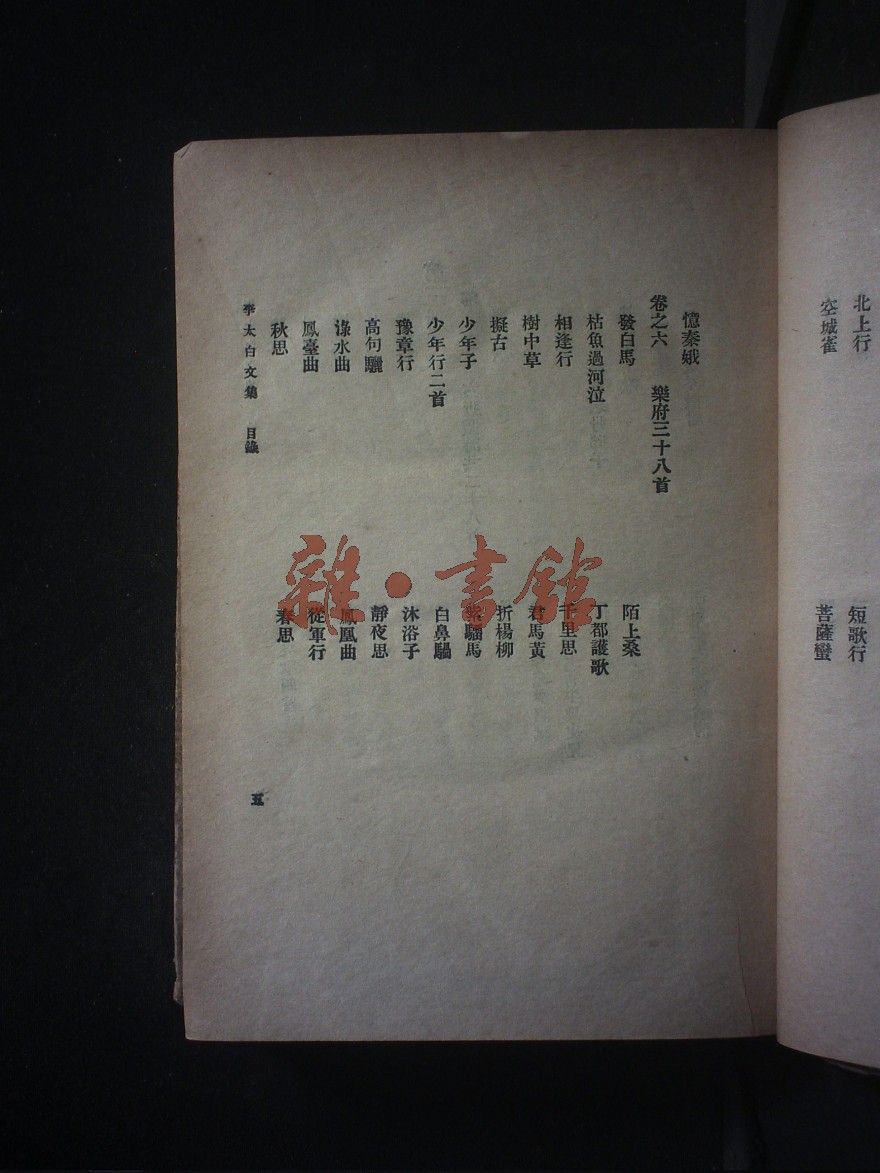 北上行
短歌行
空城雀
菩薩蠻
憶秦娥
卷之六 樂府三十八首
發白馬
陌上桑
枯魚過河泣
丁都護歌
相逢行
千里思
樹中草
君馬黃
擬古
折楊柳
少年子
紫騮馬
少年行二首
白鼻騧
豫章行
沐浴子
高句驪
靜夜思
淥水曲
鳳凰曲
鳳臺曲
從軍行
秋思
春思
李太白文集 目錄
五
雜·書館